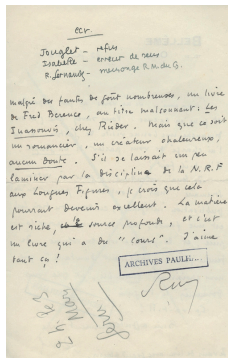 Jouglet – refus
Isabelle – erreur de
R. – mensonge R.M. du G.
malgré des fautes de goût nombreuses, un livre
de Fred Berence, au titre malsonnant : Les
, chez Rieder. Mais que ce soit
un romancier, un créateur chaleureux,
aucun doute. S'il se laissait un peu
laminer par la discipline de la N.R.F
aux Longues Figures, je crois que cela
pourrait devenir excellent. La matière
est riche, la source profonde, et c'est
un livre qui a du "cours". J'aime
tant ça !
ARCHIVES PAULH